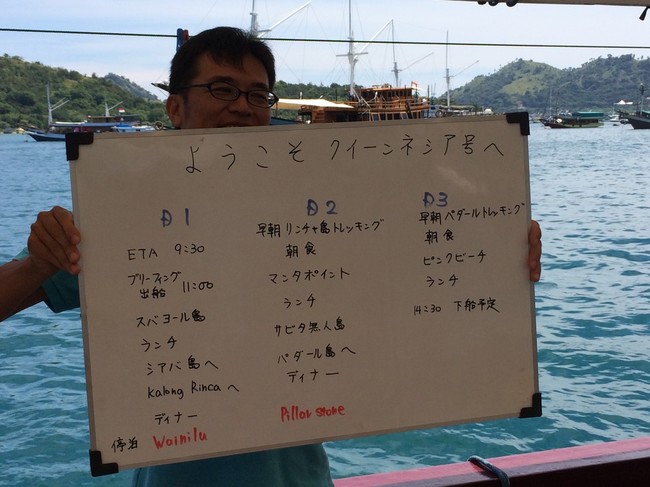 ようこそ クイーンネシア号へ
D1
ETA 9:30
ブリーフィング
出船 11:00
スバヨール島
ランチ
シアバ島へ
Kalong Rincaへ
ディナー
停泊 Wainilu
D2
早朝リンチャ島トレッキング
朝食
マンタポイント
ランチ
サビタ無人島
パダール島へ
ディナー
Pillar stone
D3
早朝パダールトレッキング
朝食
ピンクビーチ
ランチ
14:30 下船予定